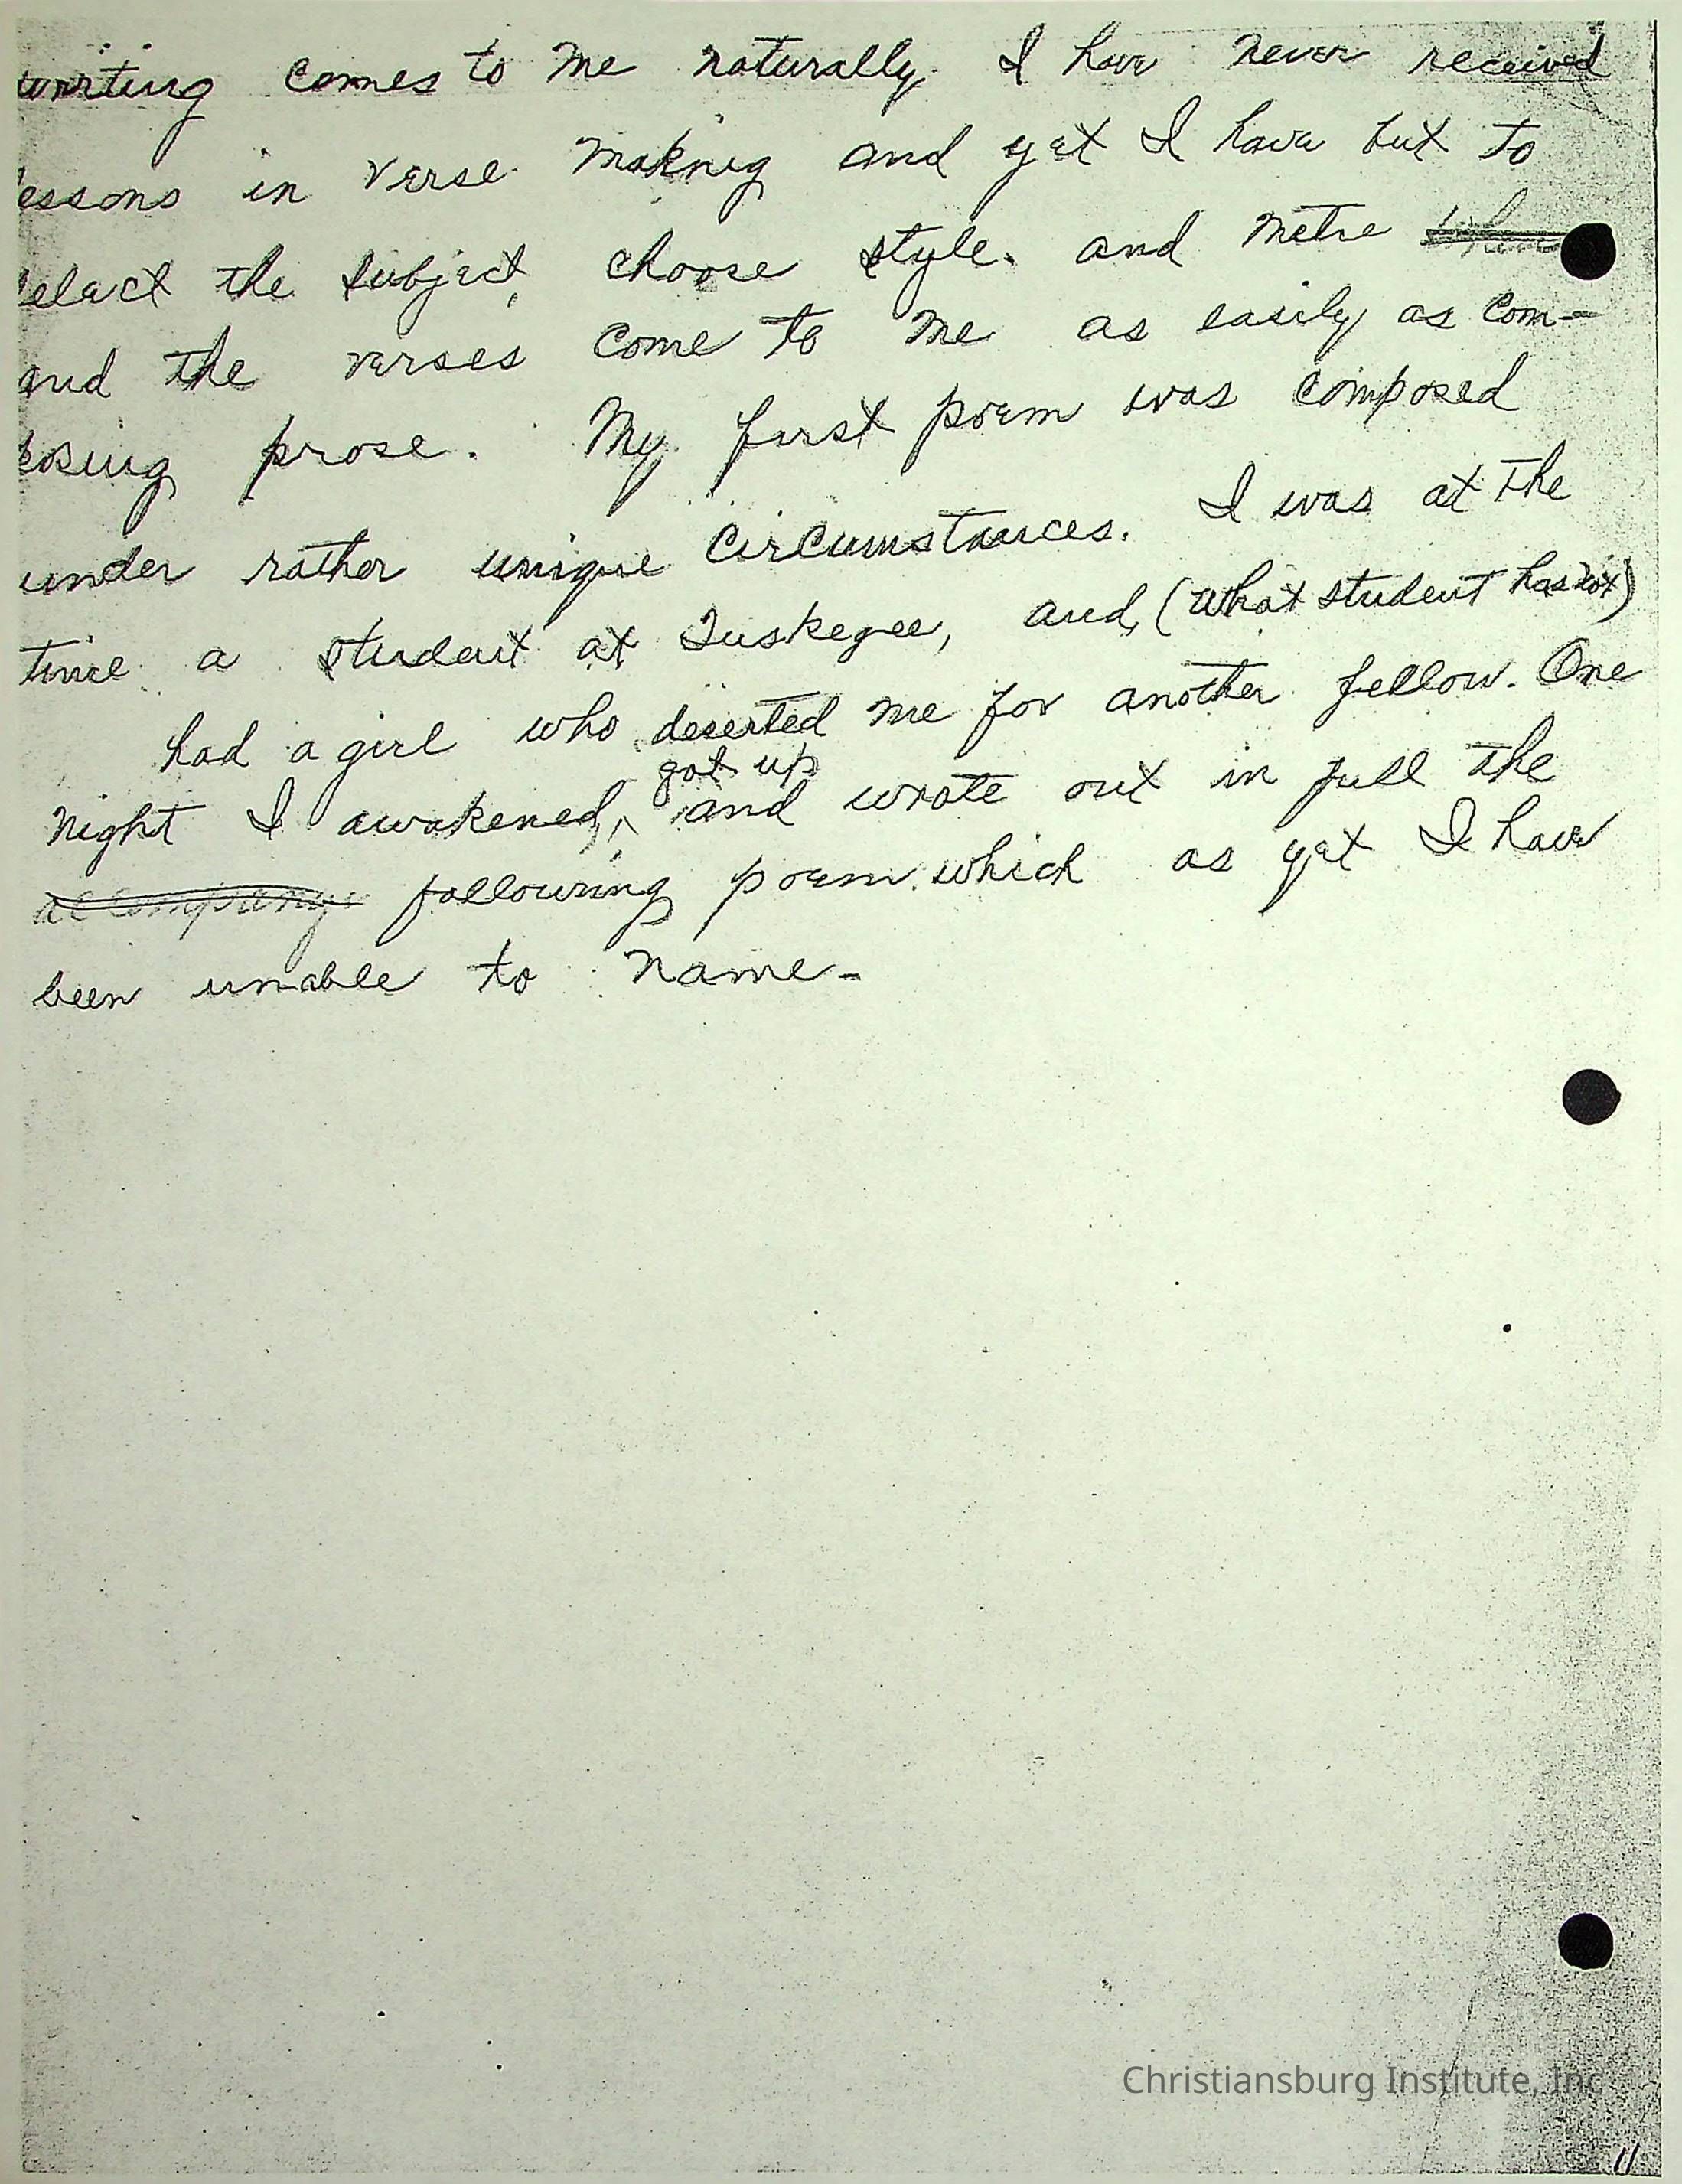 writing comes to me naturally. I have never received
essons in verse making and yet I have but to
elect the subject, choose style and metre
and the verses come to me as easily as com-
posing prose. My first poem was composed
under rather unique circumstances. I was at the
time a student at Tuskegee, and, (what student has not)
had a girl who deserted me for another fellow. One
got up
night I awakened, and wrote out in full the
following poem which as yet I have
been unable to name-
Christiansburg Institute, Inc
11